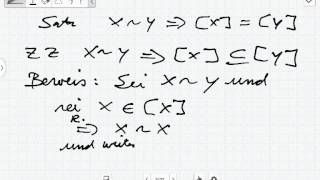 Satz X ~ Y ⇒ [X] = [Y]
ZZ X ~ Y ⇒ [X] ⊆ [Y]
Beweis: Sei X ~ Y und
sei X ∈ [X]
R. ⇒ X ~ X
und weiter